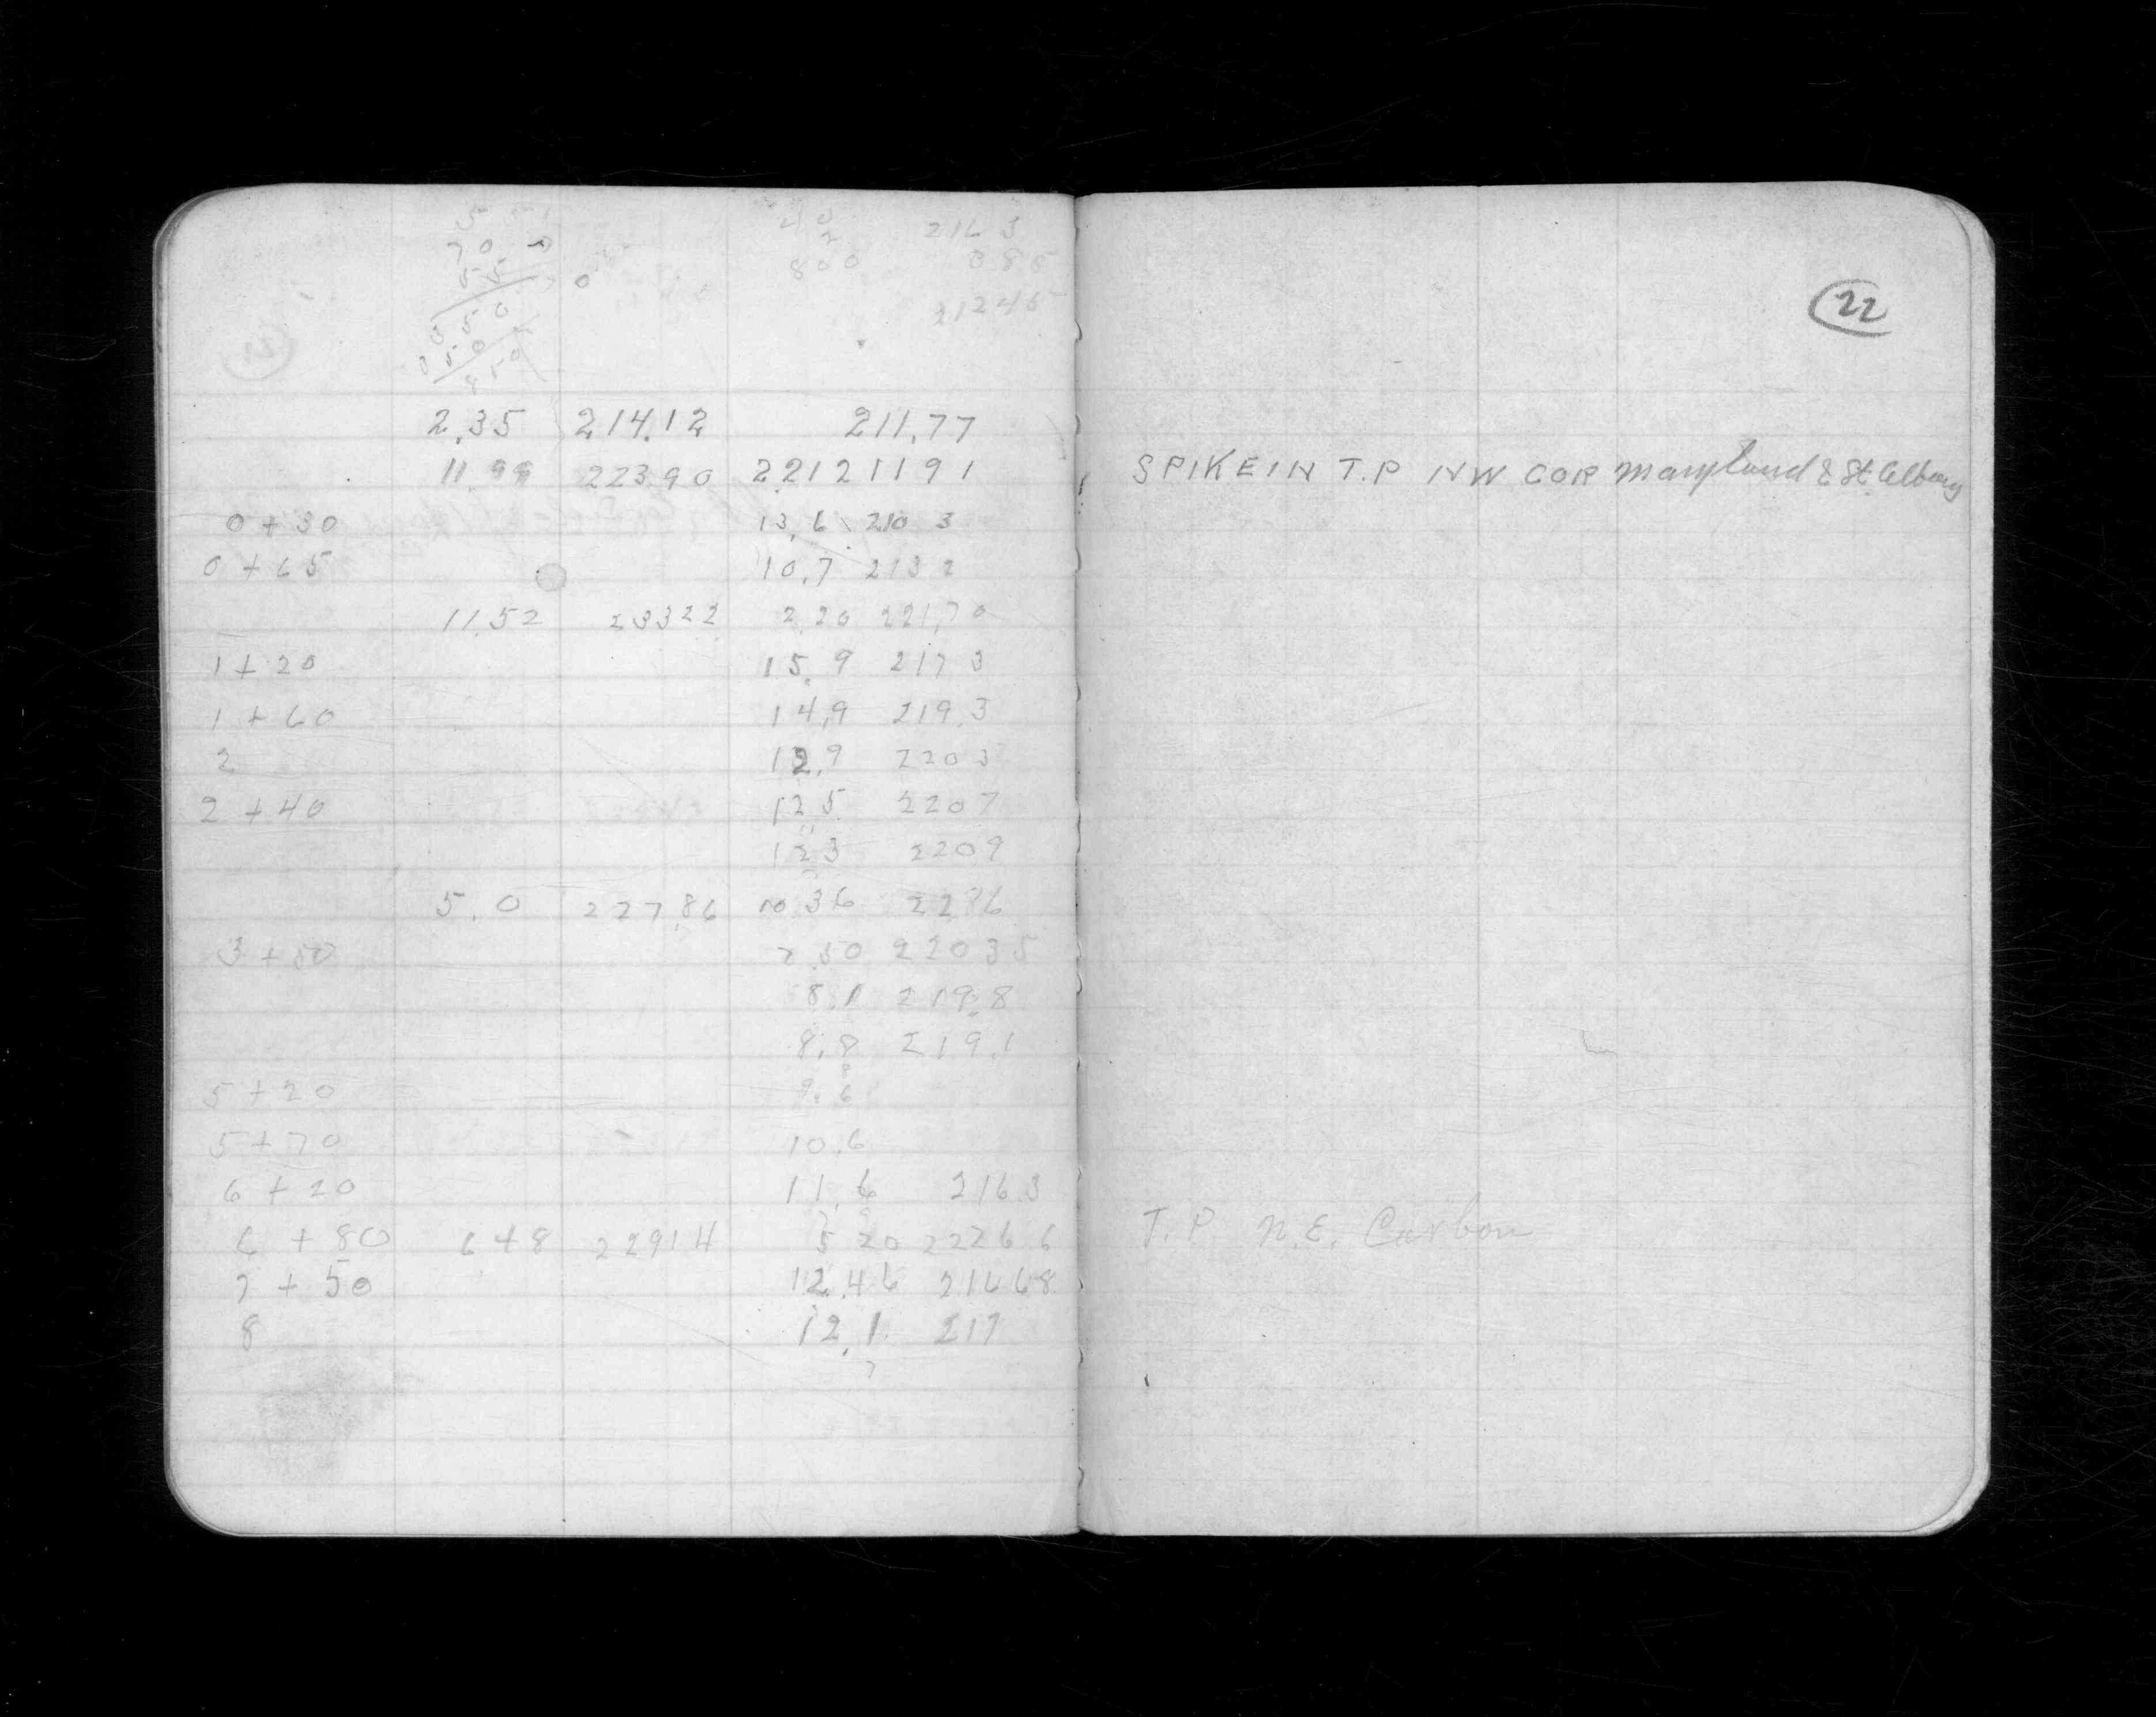 44 2163
2
800 385
21246
2.35 214.12 211.77
11.99 22390 2212 11 91 SPIKE IN T.P NW COR Maryland & St. Albany
0 + 30 13.6 210 3
0 + 65 10.7 213 2
11.52 23322 2.20 221.70
1 + 20 15.9 217 3
1 + 60 14.9 219.3
2 12.9 220 3
2 + 40 12 5 2207
12 3 2209
5.0 227.86 10 36
3 + 50 7 50 220 35
8.1 219.8
8.8 219.1
5 + 20 9.6
5 + 70 10.6
6 + 20 11.6 216 3
6 + 80 6 48 229 14 5 20 222 6 6 T.P N.E. Carbon
7 + 50 12.46 216 68
8 12.1 217
22